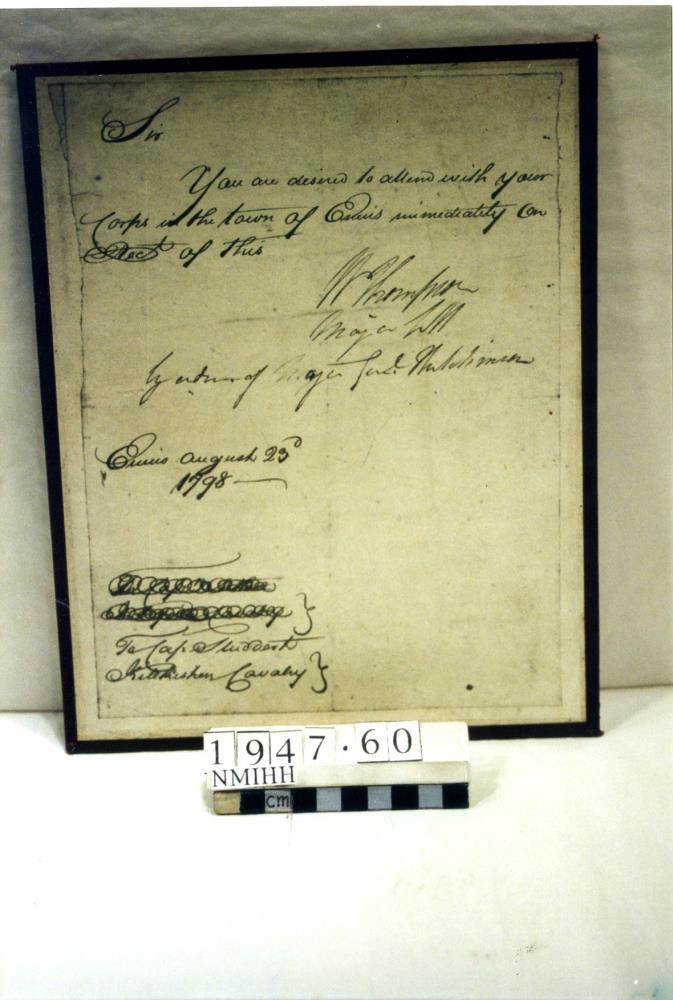 Sir
You are desired to attend with your
Corps in the town of Ennis immediately on
Rect of this
Wm Thompson
Major
by order of Major Genl. Hutchinson
Ennis august 23d
1798
To Cap. Studdert
Kilkishen Cavalry
1947.60
NMIHH
cm